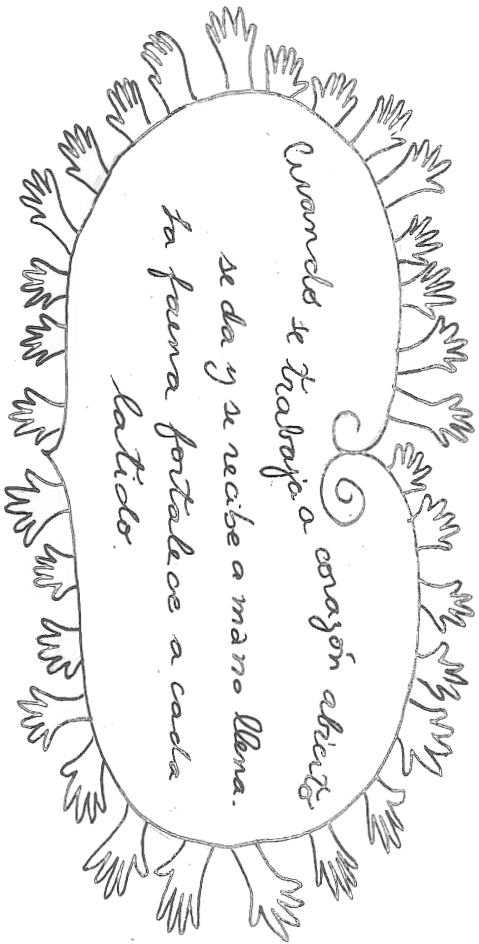 Cuando se trabaja a corazón abierto
se da y se recibe a mano llena.
La faena fortalece a cada
latido.